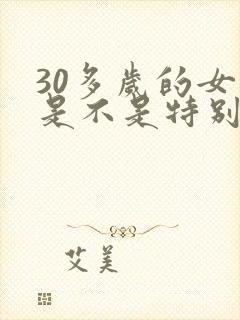 30多歲的女
是不是特别
艾美